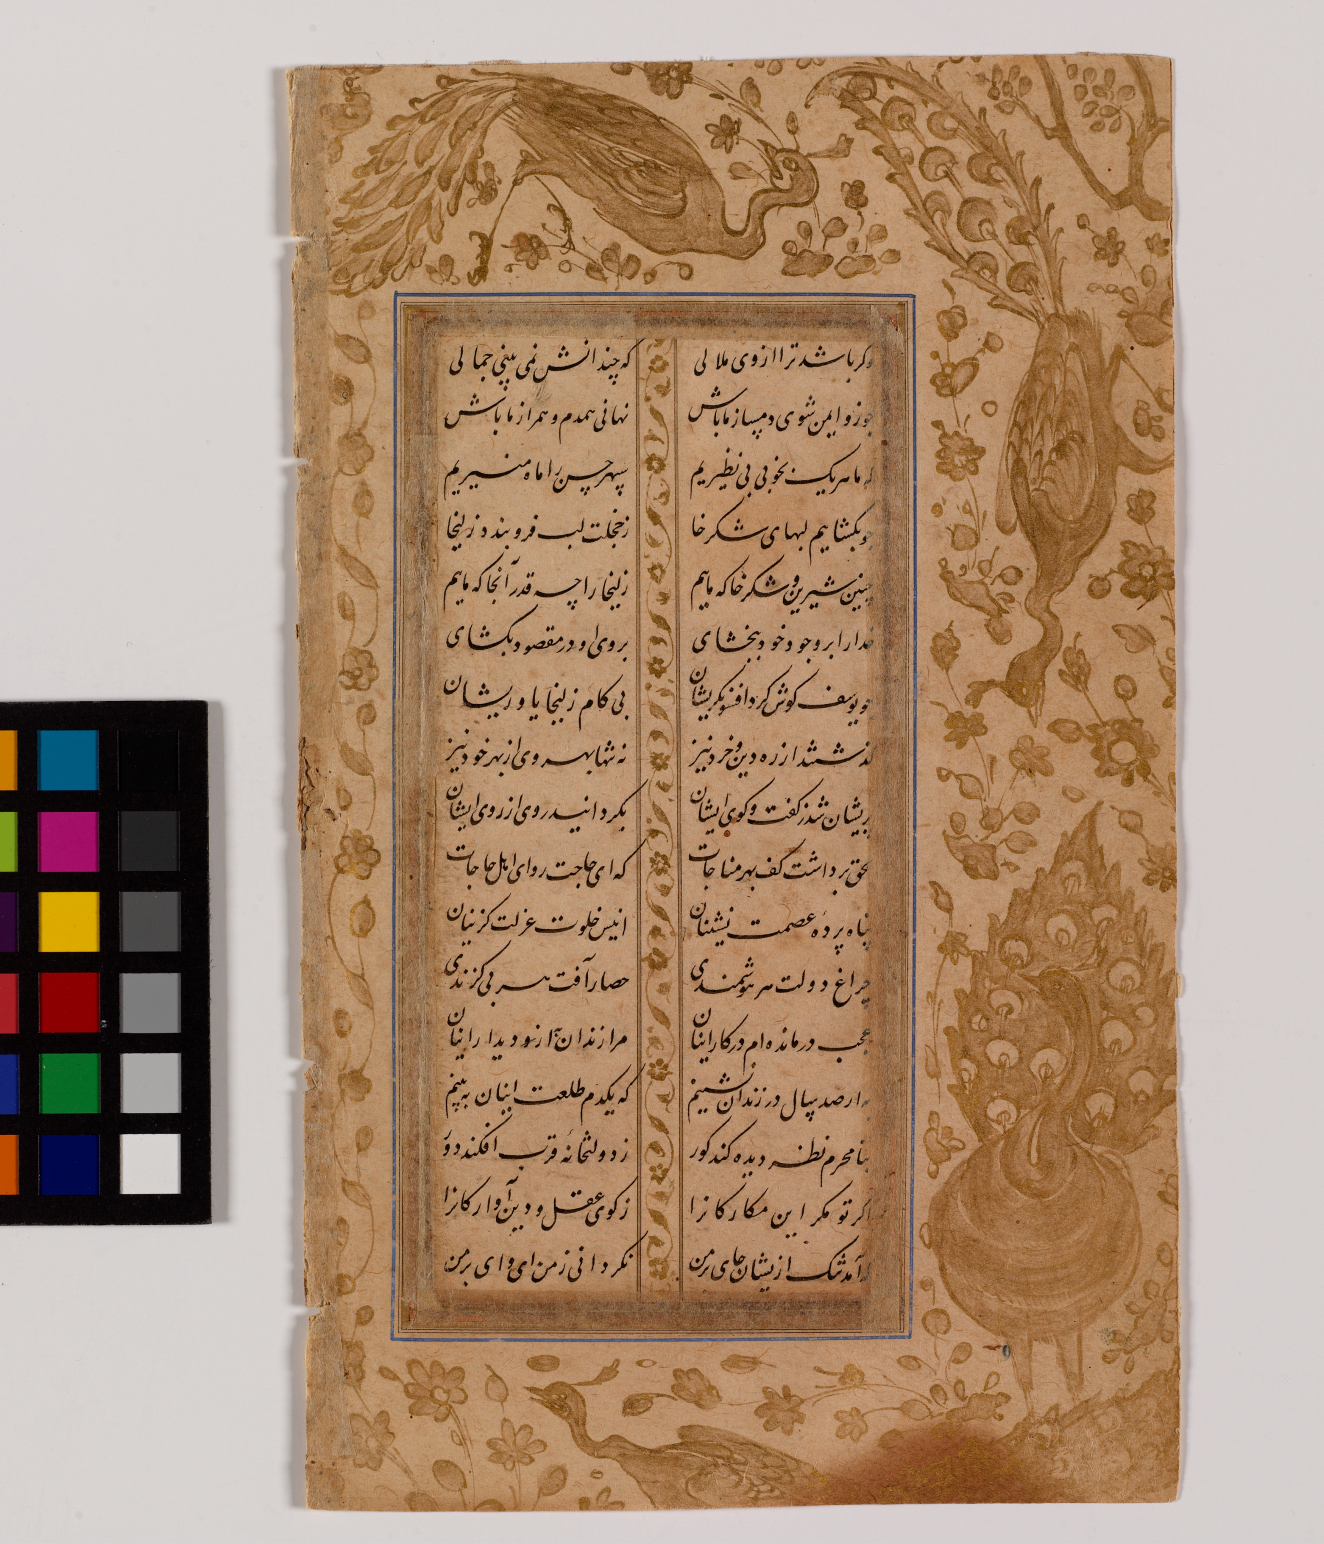 وکر باشد ترا ازوی ملالی که چندانش نمی بینی جمالی
چوزو ایمن شوی دمساز ما باش نهانی همدم و همراز ما باش
که ما هریک بخوبی بی نظیریم سپهر حسن را ماه منیریم
چو بکشاییم لبهای شکرخا زخجلت لب فروبندد زلیخا
چنین شیرین و شکرخا که ماییم زلیخا را چه قدر آنجا که ماییم
خدارا بر وجود خود ببخشای بروی او در مقصود بکشای
چو یوسف کوش کرد افسونکریشان پی کام زلیخا یاوریشان
کذشتند از ره دین و خرد نیز نه تنها بهر وی از بهر خود نیز
پریشان شد ز کفت و کوی ایشان بکردانید روی از روی ایشان
بحق برداشت کف بهر مناجات که ای حاجت روای اهل حاجات
پناه پرده عصمت نشینان انیس خلوت عزلت کزینان
چراغ دولت هر هوشمندی حصار آفت هر بی کزندی
عجب درمانده ام در کار اینان مرا زندان به از دیدار اینان
به ار صد سال در زندان نشینم که یکدم طلعت اینان ببینم
بنامحرم نظر دیده کند کور ز دولتخانه قرب افکند دور
اکر تو مکر این مکارکانرا ز کوی عقل و دین آوارکانرا
نکردانی ز من ای وای بر من
آمد تنک ازیشان جای بر من